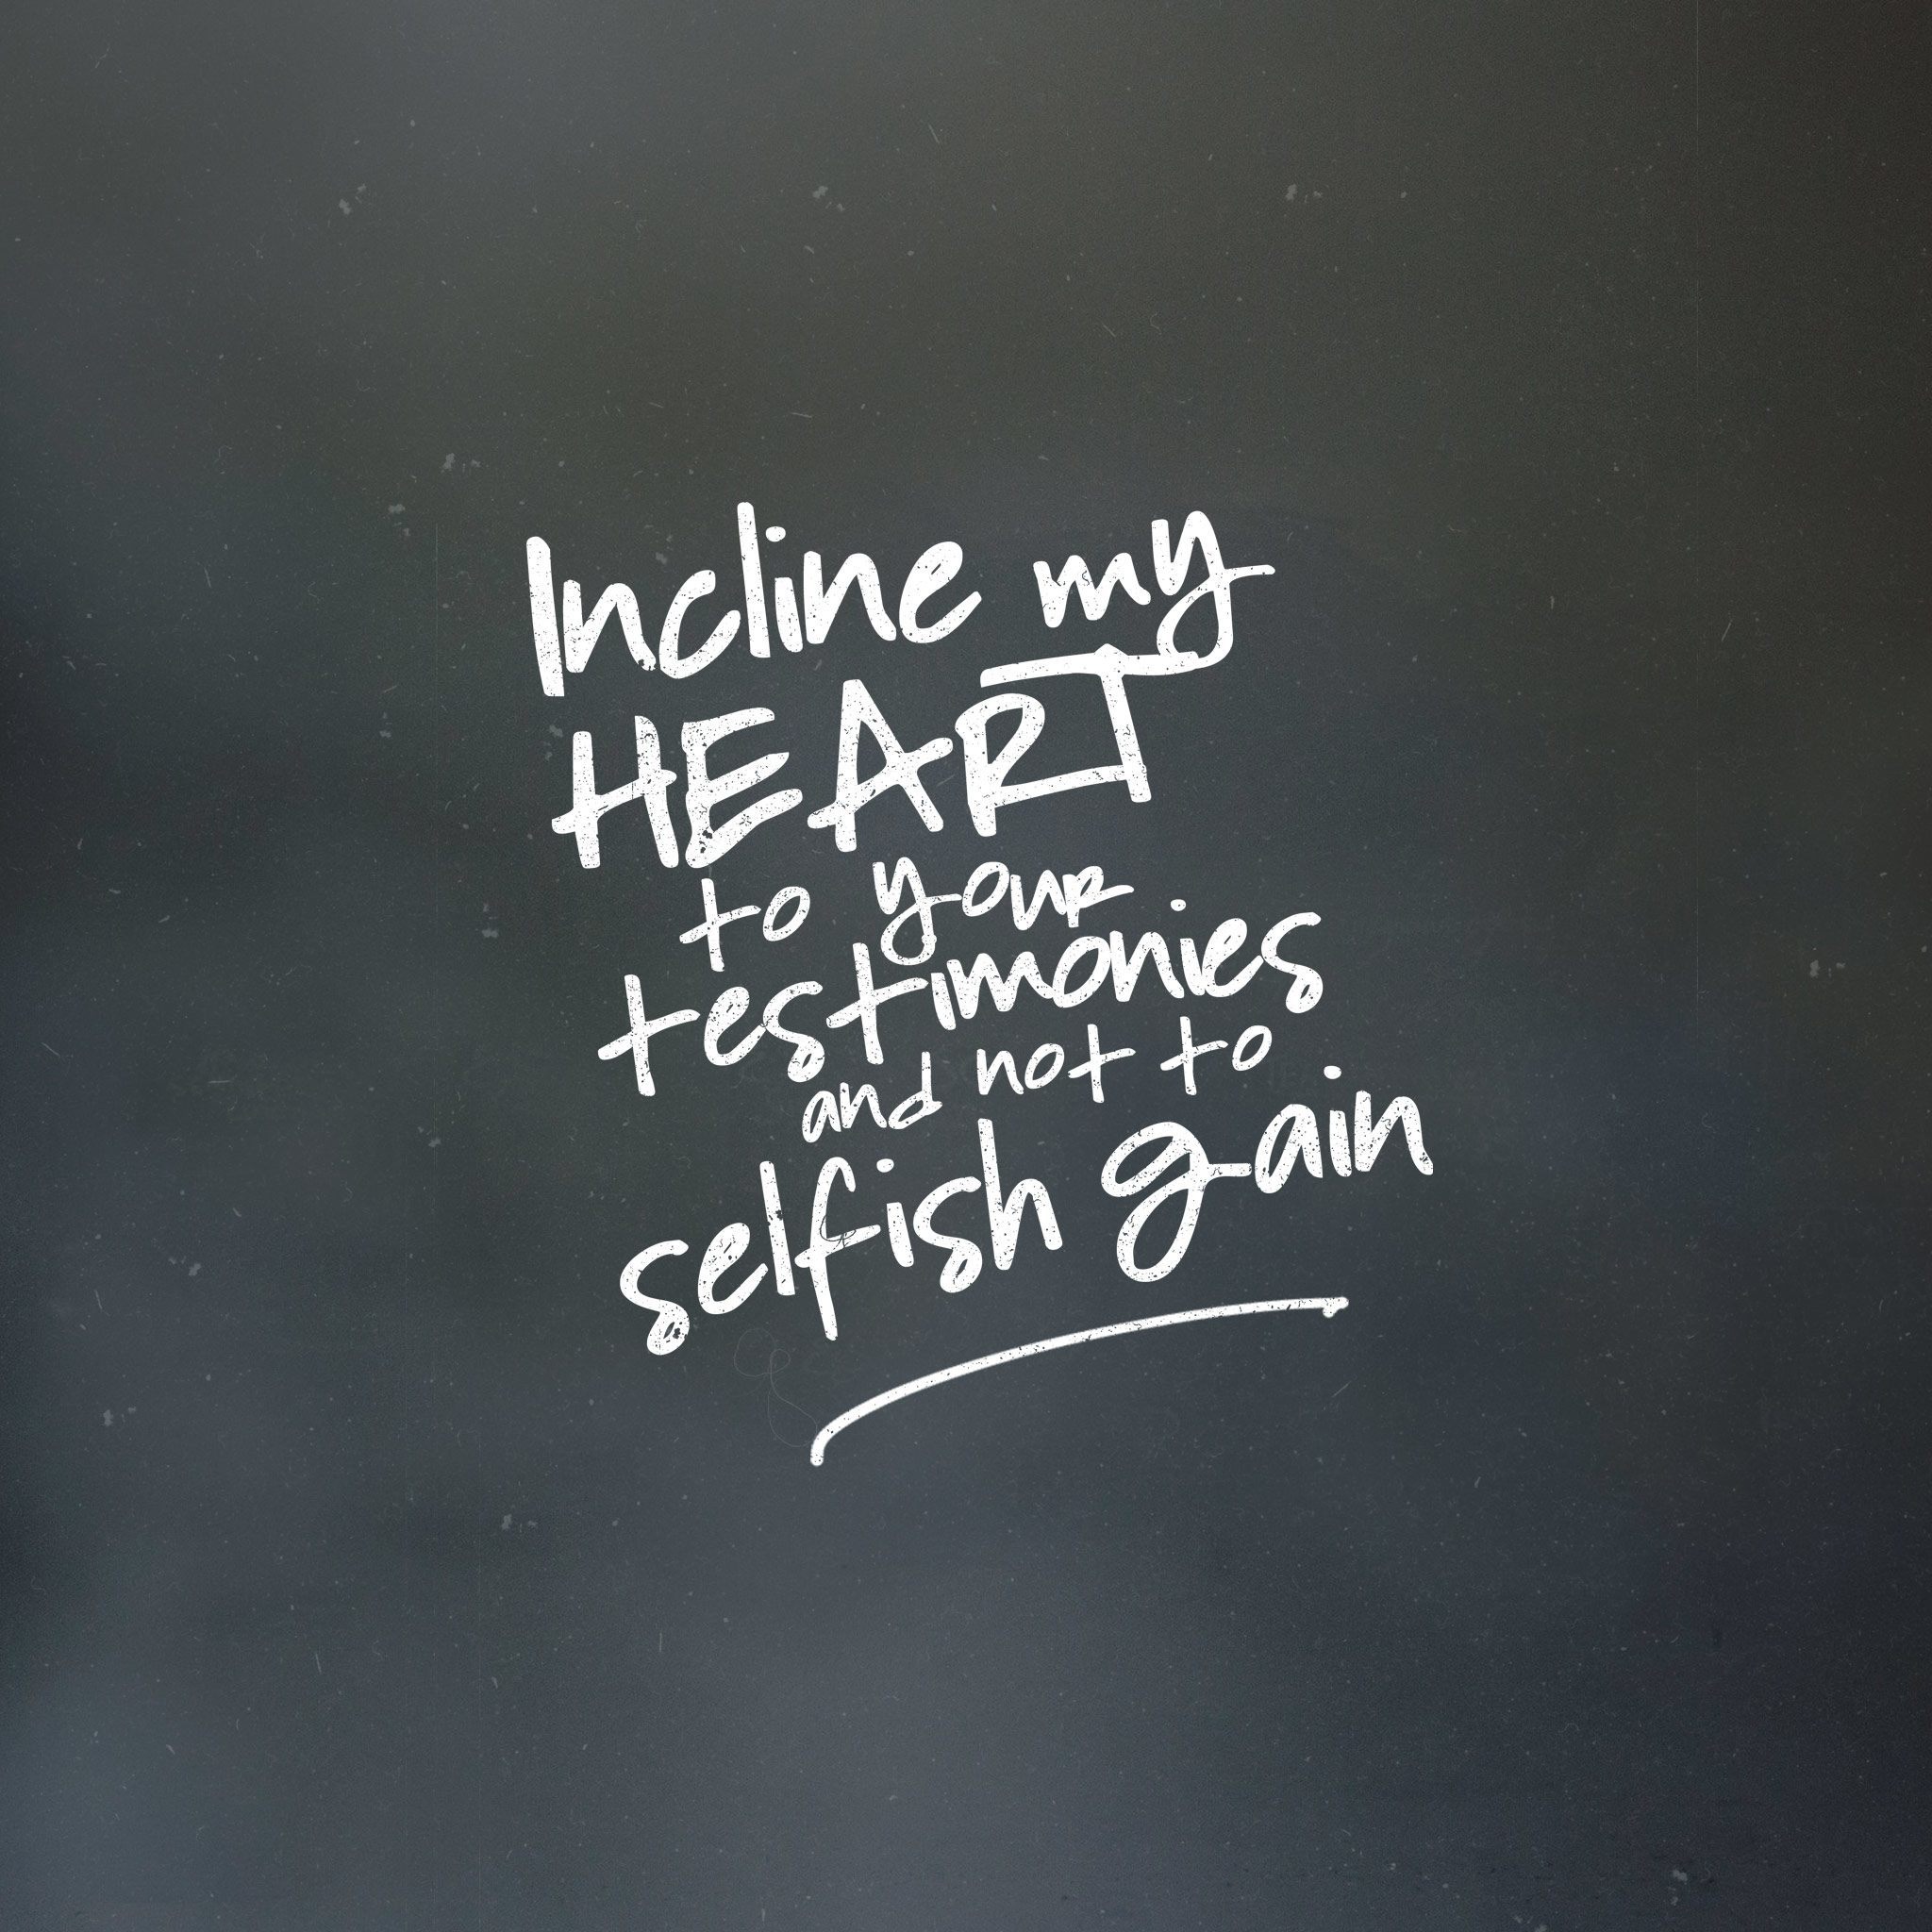 Incline my
HEART
to your
testimonies
and not to
selfish gain